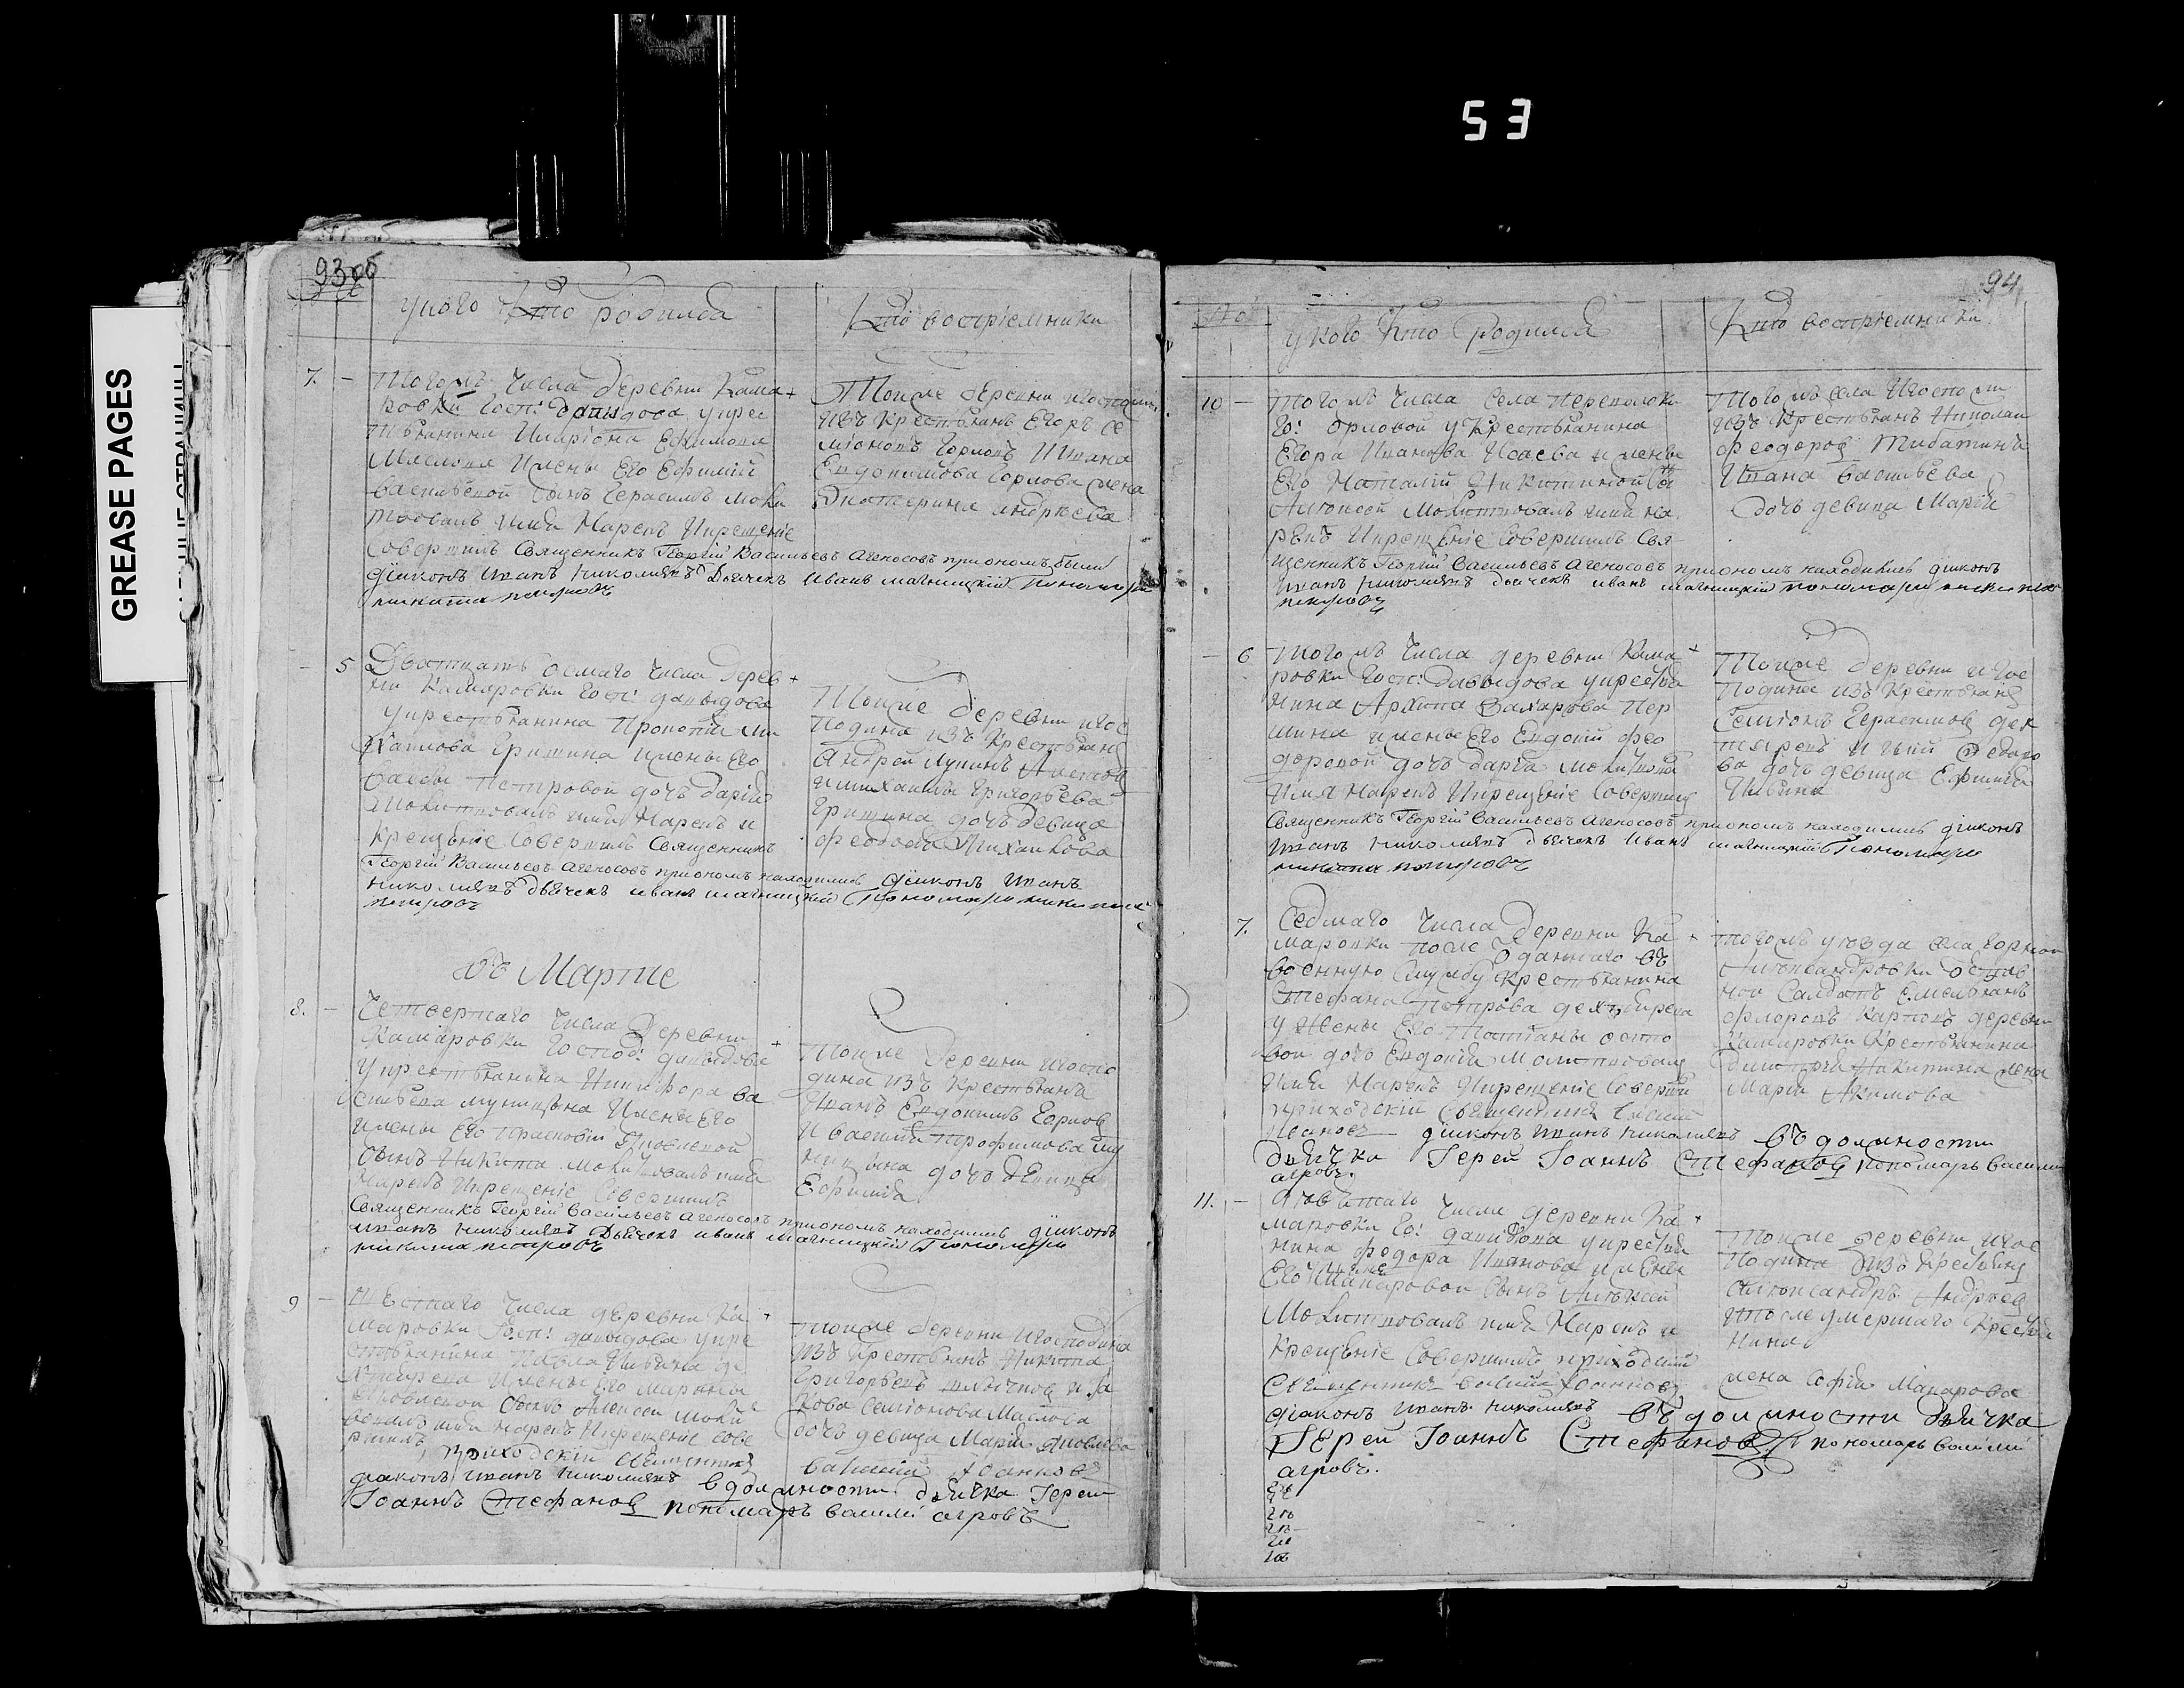 53
GREASE PAGES
93об
у кого кто родился
Кто восприемники
7.
Тогожъ числа деревни Кама
ровки Госп: давыдова у крес
тьянина Илариона Ефимова
Маслова и жены его Ефимiи
васильевой сынъ Герасимъ моли
твовалъ имя нарекъ и крещенiе
совершилъ Священникъ Георгiй Васильевъ Агеносовъ приономъ были
дiаконъ Иванъ николаевъ Дьячекъ иванъ магницкiй Пономарь
никита петровъ
Тояже деревни
изъ крестьянъ Егоръ Се
мiоновъ Горловъ и Ивана
Евдокимова Горлова жена
Екатерина андреева
5
Дватцать осмаго числа дерев
ни Камаровки Госп: давыдова
у крестьянина Прокопiя ми
хаилова Гришина и жены его
Петровой дочь дарiя
Молитвовалъ имя нарекъ и
крещенiе совершилъ Священникъ
Георгiй Васильевъ Агеносовъ приономъ находились дiаконъ Иванъ
николаевъ дьячекъ иванъ магницкiй Пономарь никита
петровъ
Тояже деревни и гос
подина изъ крестьянъ
Андрей Лукинъ
и михаилы Григорьева
Гришина дочь девица
Михаилова
въ Марте
8.
Четвертаго числа Деревни
Камаровки Господ: давыдова
у крестьянина Никифора ва
сильева и жены Его
жены Его Прасковiи Яковлевой
сынъ Никита молитвовалъ имя
нарекъ и крещенiе совершилъ
Священникъ Георгiй Васильевъ Агеносовъ приономъ находились дiаконъ
иванъ николаевъ Дьячекъ иванъ магницкiй Пономарь
никита петровъ
Тояже деревни и госпо
дина изъ крестьянъ
Иванъ Евдокимъ Горлов
и василiя Трофимова
дочь девица
Ефимiя
9
Шестаго числа деревни Ка
маровки Госп: давыдова у кре
стьянина Павла
и жены Его Марины
Яковлевой сынъ Алексей моли
вовалъ имя нарекъ и крещенiе сове
ршилъ приходскiй священникъ
дiаконъ иванъ николаевъ в должности дьячка Iерей
Iоаннъ Стефановъ пономарь василiй агровъ
Тояже деревни и господина
изъ крестьянъ Никита
Григорьевъ и Иа
кова Семiонова Маслова
дочь девица Марiя Яковлева
василiй Iоанновъ
94
№
у кого кто родился
Кто восприемники
10
Тогожъ числа села Переволоки
Го: Орловой у крестьянина
Егора Иванова Исаева и жены
Его Наталiи Никитиной сы
Алексей Молитвовалъ имя на
рекъ и крещенiе совершилъ Свя
щенникъ Георгiй Васильевъ Агеносовъ приономъ находились дiаконъ
Иванъ николаевъ дьячекъ иванъ магницкiй пономарь никита
петровъ
Тогожъ села и госпожи
изъ крестьянъ Николай
феодоров
Ивана васильева
дочь девица Марiя
6
Тогожъ числа деревни Кама
ровки Госп: Давыдова у крестья
нина Архипа Захарова Пер
шина и жены Его Евдокiи фео
доровой дочь дарiя молитвова
имя нарекъ и крещенiе совершил
Священникъ Георгiй Васильевъ Агеносовъ приономъ находились дiаконъ
иванъ николаевъ дьячекъ иванъ магницкiй Пономарь
никита петровъ
Тояже деревни и гос
подина изъ крестьянъ
Семiонъ Герасимов дех
тяревъ
ва дочь девица Ефимiя
7.
Седмаго числа деревни Ка
маровки после отданнаго въ
военную службу крестьянина
Стефана Петрова дехтярева
у жены Его Татiаны
вой дочь Евдокiя Молитвовалъ
имя нарекъ и крещенiе соверши
приходскiй священникъ василiй
Iоановъ дiаконъ иванъ николаевъ въ должности
дьячка Iерей Iоаннъ Стефановъ пономарь василiй
агровъ.
Тогожъ уезда села Горной
Александровки отстав
ной Салдатъ Емельянъ
Флоровъ Карповъ деревни
Камаровки Крестьянина
Димитрiя Никитина жена
Марiя Акимова
11.
Девятаго числа деревни Ка
маровки Го: давыдова у крестья
нина феодора Иванова и жены
Его Макаровой сынъ Алексей
Молитвовалъ имя нарекъ и
крещенiе совершилъ приходскiй
священникъ василiй Iоанновъ
дiаконъ иванъ николаевъ въ должности дьячка
Iерей Iоаннъ Стефановъ пономарь василiй
агровъ.
Тояже деревни и гос
подина изъ крестьянъ
Александръ Андреев
и после умершаго крестья
нина
жена Софiя Макарова